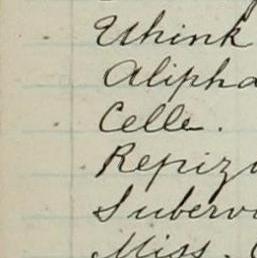 Uhink
Alipha
Celle.
Repizu
Subervi
Miss.